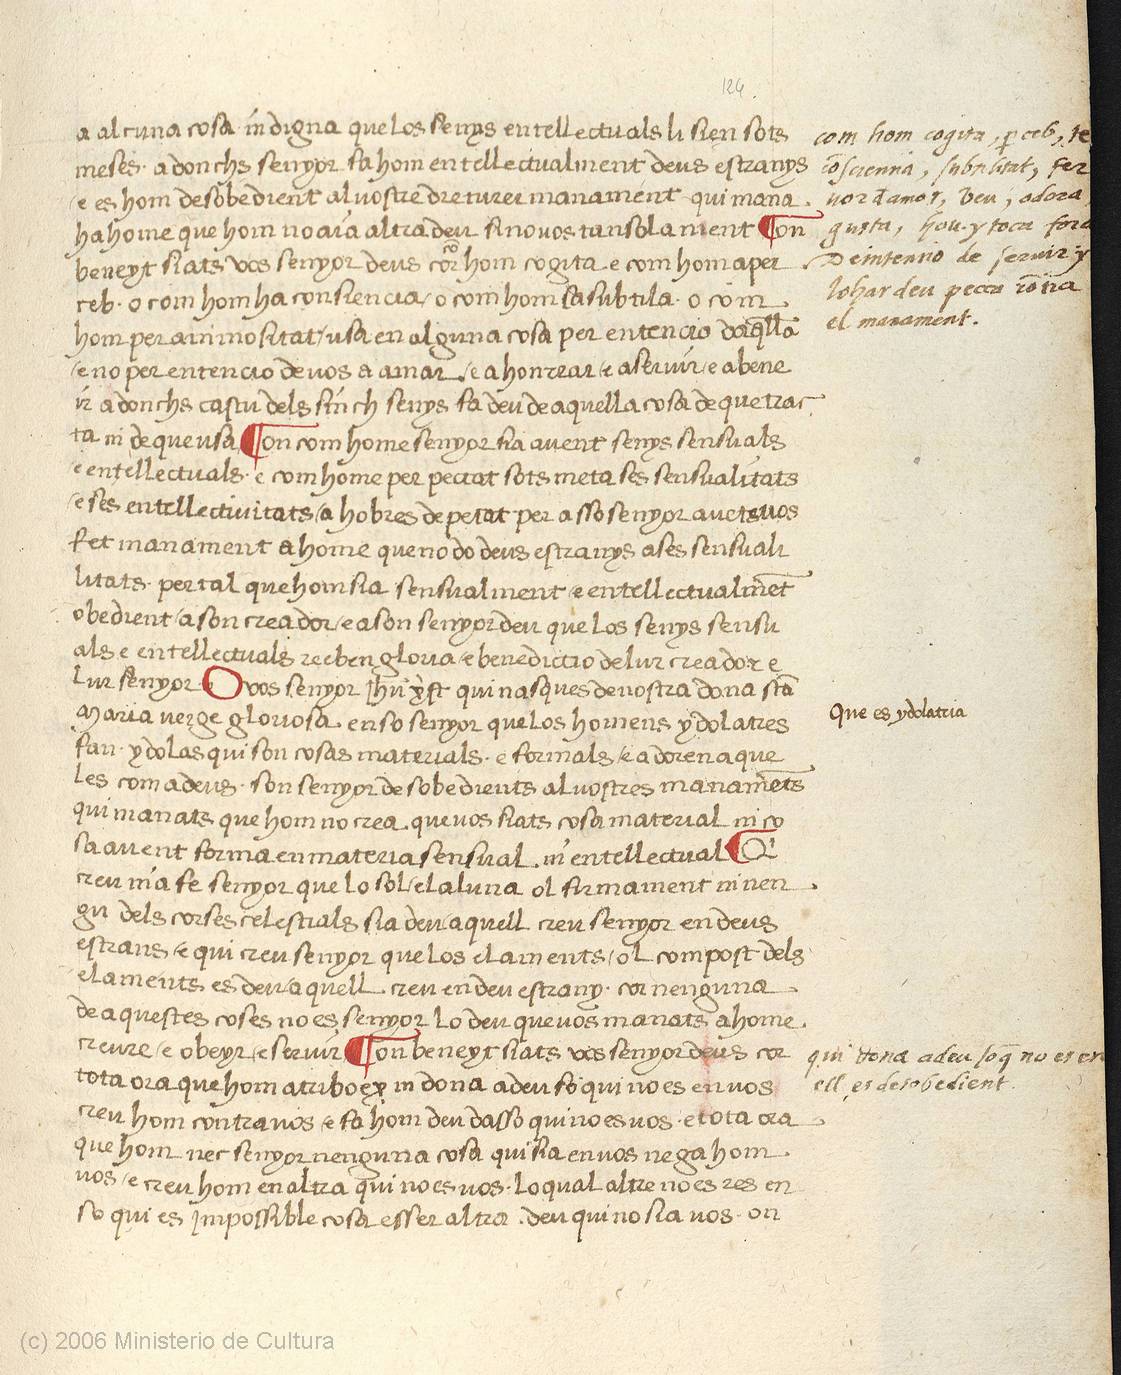 124.
a alcuna cosa indigna que los senys entellectuals li sien sots
meses · adonchs senyor fa hom entellectualment deus estranys
e es hom desobedient al vostre dreturer manament qui mana
ha home que hom no aia altra deu sino vos tansolament ¶ On
beneyt siats vos senyor deus cor com hom cogita e com hom aper
ceb · o com hom ha consiencia / o com hom sa subtila · o com
hom per animositat / usa en alguna cosa per entencio daq̃lla
/ e no per entencio de vos a amar / e a honrrar / e a servir / e a bene
ir adonchs cascu dels sinch senys fa deu de aquella cosa de que trac
ta ni de que usa ¶ On com home senyor sia avent senys sensuals
e entellectuals · e com home per peccat sots meta ses sensualitats
/ e ses entellectivitats / a hobres de pecat per asso senyor avets vos
fet manament a home que no do deus estranys a ses sensuali
litats · per tal que hom sia sensualment / e entellectualmẽt
obedient / a son creador / e a son senyor deu que los senys sensu
als e entellectuals reeben gloria / e benediccio de lur creador e
lur senyor · O vos senyor Jhũ x̃st qui nasques de nostra dona sc̃a
Maria verge gloriosa · en so senyor que los homens ydolatres
fan · ydolas qui son cosas materials · e formals / e adoren aque
les com a deus · son senyor desobedients al vostres manamẽts
qui manats que hom no crea · que vos siats cosa material ni co
sa avent forma en materia sensual · ni entellectual ¶ Qi
creu ma fe senyor que lo sol / e la luna o l firmament ni nen
gu dels corses celestials sia deu / aquell creu senyor en deus
estrans / e qui creu senyor que los elaments / o l compost dels
elaments es deu / aquell · creu en deu estrany · cor nenguna
de aquestes coses no es senyor lo deu que vos manats a home
creure / e obeyr / e servir ¶ On beneyt siats vos senyor deus cor
tota ora que hom atriboex ni dona a deu so qui no es en vos
creu hom contra vos / e fa hom deu dasso qui no es vos · e tota ora
que hom nec senyor nenguna cosa qui sia en vos nega hom
vos / e creu hom en altra qui no es vos · lo qual altre no es res en
so qui es impossible cosa esser altra · deu qui no sia vos · on
com hom cogita, p̃ceb, te
cõsciennia, subtilitat, fer
vor damor, Veu, adora,
gusta, hou y toca fora
D eintenno de servir y
lohar deu pecca cõtra
el manament.
Que es ydolatria
qui dona a deu so q̃ no es en
ell, es desobedient.
(c) 2006 Ministerio de Cultura